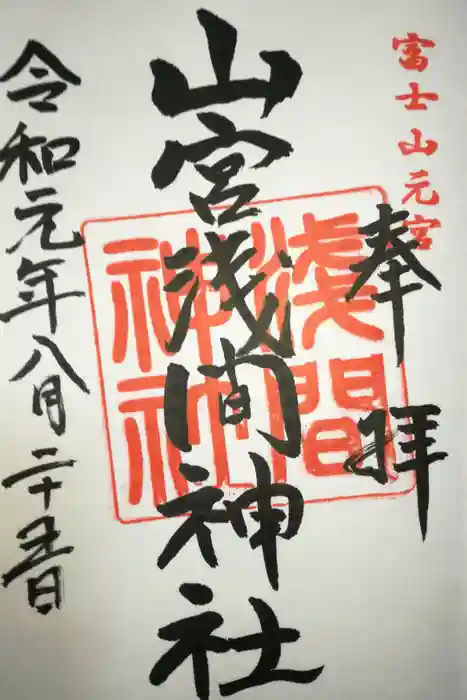 富士山元宮
奉拝
山宮浅間神社
浅間
神社
令和元年八月二十五日